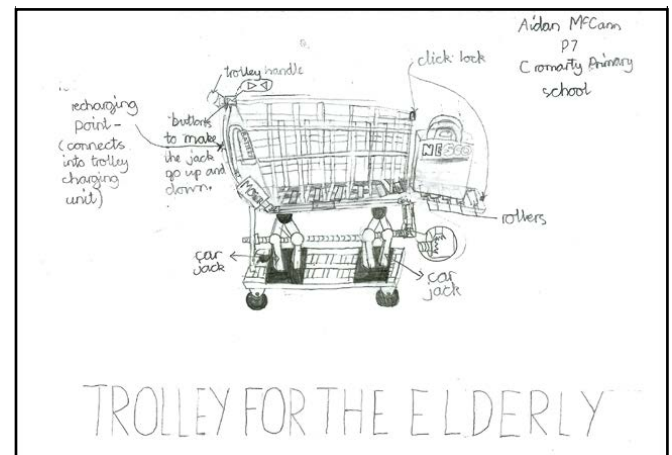 Aidan McCann
P7
Cromarty Primary
school
trolley handle
click lock
recharging
point –
(connects
into trolley
charging
unit)
buttons
to make
the jack
go up and
down.
rollers
car
jack
car
jack
TROLLEY FOR THE ELDERLY